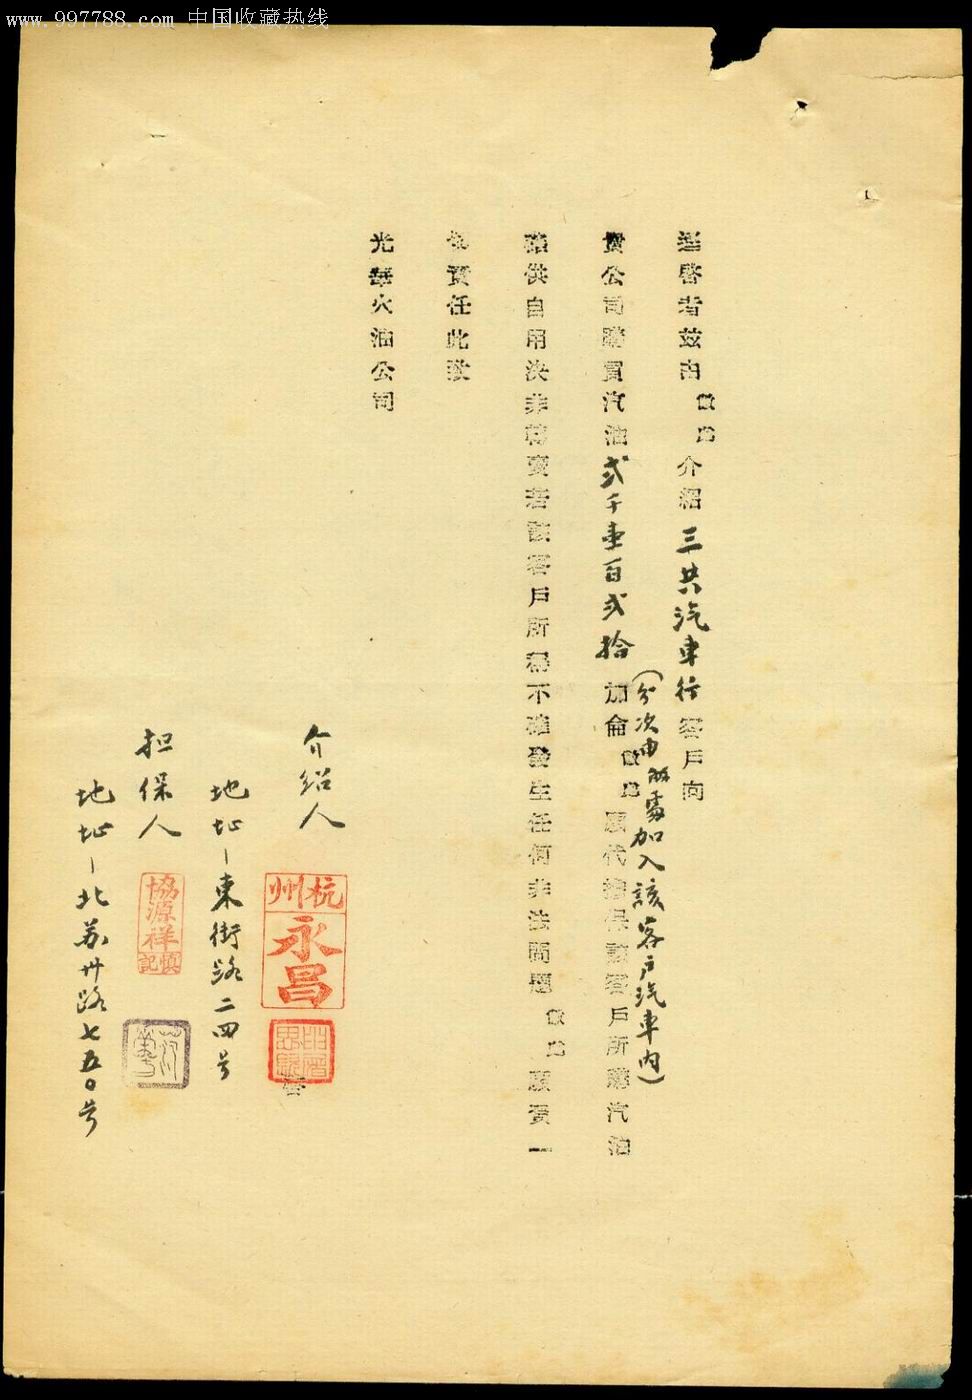 www.997788.com 中国收藏热线
逕啓者兹由敝處介紹三共汽車行客戶向
貴公司購買汽油弍千壹百弍拾加侖敝處願代擔保該客戶所購汽油
(分次由敝處加入該客戶汽車內)
確供自用決非轉賣若該客戶所稱不確發生任何非法問題敝處願負一
切責任此致
光華火油公司
介绍人
杭州
永昌
地址-東街路二四号
担保人
協源祥
慎記
地址-北苏州路七五0号